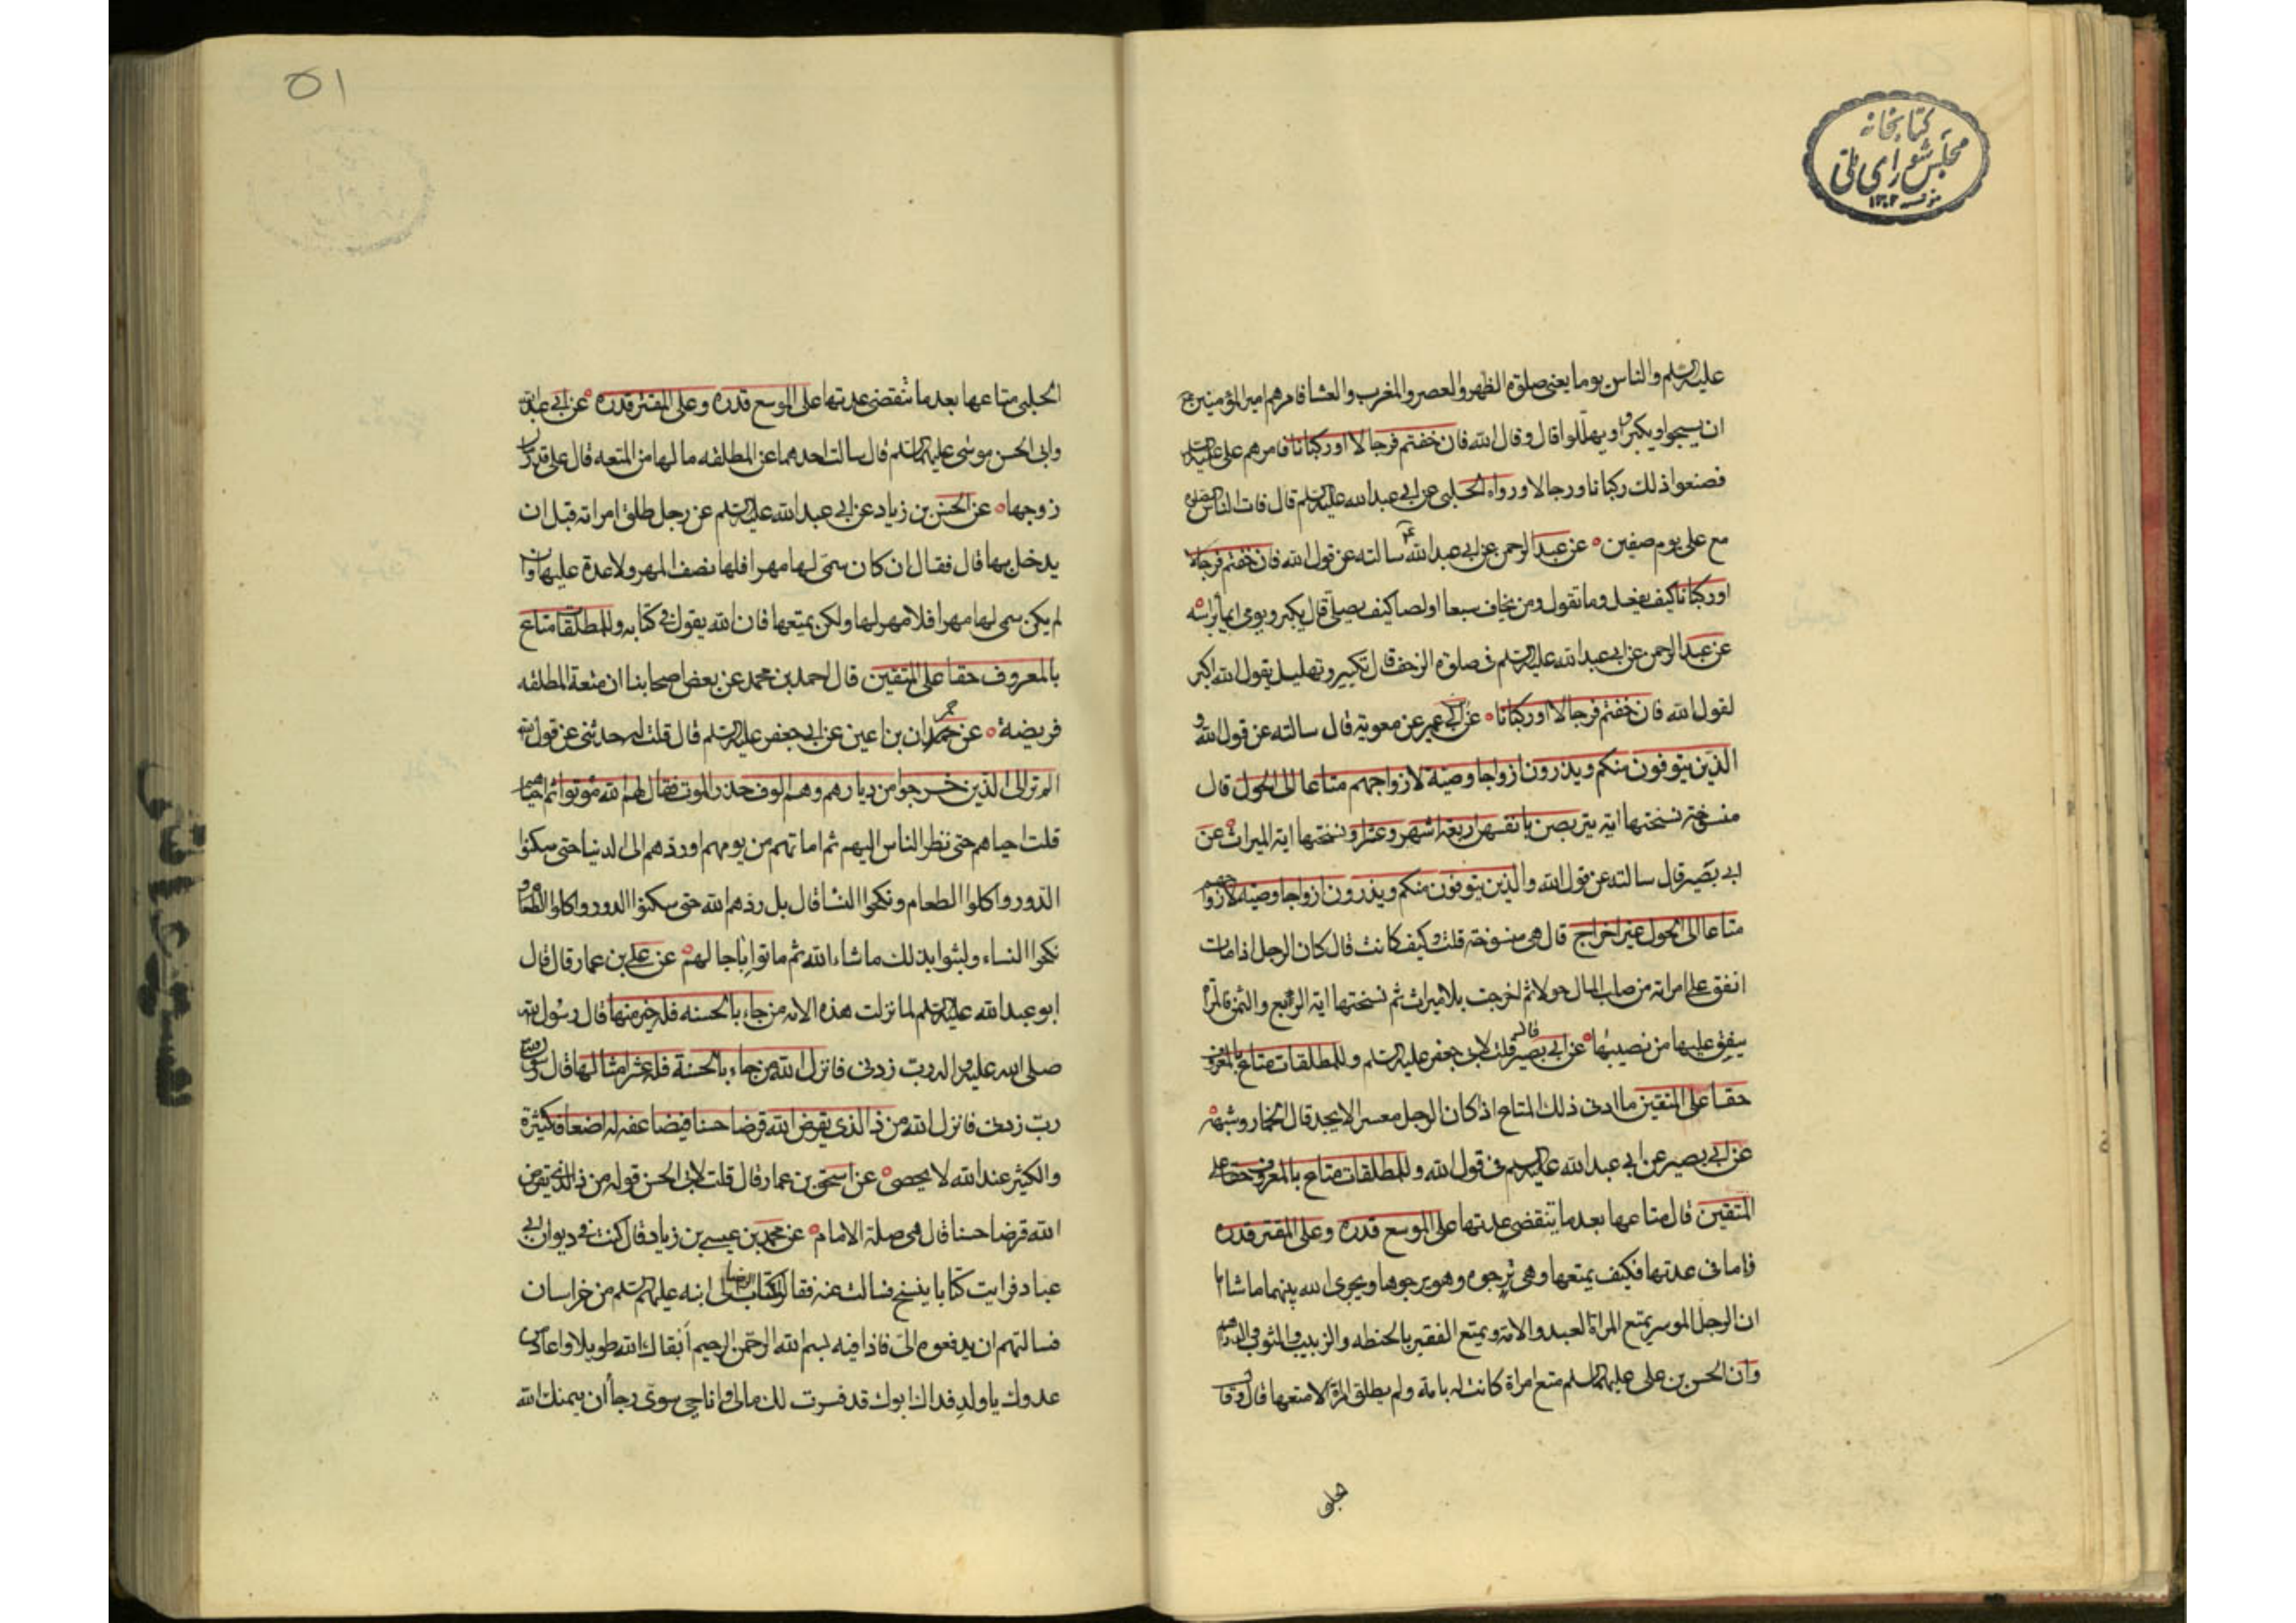 كتابخانه
مجلس شورای ملی
۱۳۰۲
عليه السلم والناس يوما يعنى صلوة الظهر والعصر والمغرب والعشا فامرهم امير المؤمنين ع
ان يسبحوا ويكبروا ويهللوا قال وقال الله فان خفتم فرجالا او ركبانا فامرهم على عليه السلم
فصنعوا ذلك ركبانا ورجالا ورواه الحلبى عن ابى عبد الله عليه السلم قال فات الناس الصلوة
مع على يوم صفين عن عبد الرحمن عن ابى عبد الله ع سالته عن قول الله فان خفتم فرجالا
او ركبانا كيف يفعل وما تقول ومن يخاف سبعا او لصا كيف يصلى قال يكبر ويومى ايماء براسه
عن عبد الرحمن عن ابى عبد الله عليه السلم فى صلوة الزحف قال تكبير وتهليل يقول الله اكبر
لقول الله فان خفتم فرجالا او ركبانا عن ابى عمير عن معوية قال سالته عن قول الله و
الذين يتوفون منكم ويذرون ازواجا وصية لازواجهم متاعا الى الحول قال
منسوخة نسختها اية يتربصن بانفسهن اربعة اشهر وعشرا ونسختها اية الميراث عن
ابى بصير قال سالته عن قول الله والذين يتوفون منكم ويذرون ازواجا وصية لازواجهم
متاعا الى الحول غير اخراج قال هى منسوخة قلت وكيف كانت قال كان الرجل اذا مات
انفق على امراته من صلب المال حولا ثم اخرجت بلا ميراث ثم نسختها اية الربع والثمن فالمراة
ينفق عليها من نصيبها عن ابى بصير قال قلت لابى جعفر عليه السلم وللمطلقات متاع بالمعروف
حقا على المتقين ما ادنى ذلك المتاع اذا كان الرجل معسرا لا يجد قال الخمار وشبهه
عن ابى بصير عن ابى عبد الله عليه السلم فى قول الله وللمطلقات متاع بالمعروف حقا على
المتقين قال متاعها بعد ما تنقضى عدتها على الموسع قدره وعلى المقتر قدره
فاما فى عدتها فكيف يمتعها وهى ترجوه وهو يرجوها ويجرى الله بينهما ما شاء
ان الرجل الموسر يمتع المراة العبد والامة ويمتع الفقير بالحنطه والزبيب والثوب والدراهم
وان الحسن بن على عليهما السلم متع امراة كانت له بامة ولم يطلق امراة الا متعها قال وقال
الحلبى
۵۱
الحلبى متاعها بعد ما تنقضى عدتها على الموسع قدره وعلى المقتر قدره عن ابى عبد الله
وابى الحسن موسى عليهما السلم قال سالت احدهما عن المطلقه ما لها من المتعه قال على قدر مال
زوجها عن الحسن بن زياد عن ابى عبد الله عليه السلم عن رجل طلق امراته قبل ان
يدخل بها قال فقال ان كان سمى لها مهرا فلها نصف المهر ولا عدة عليها وان
لم يكن سمى لها مهرا فلا مهر لها ولكن يمتعها فان الله يقول فى كتابه وللمطلقات متاع
بالمعروف حقا على المتقين قال احمد بن محمد عن بعض اصحابنا ان متعة المطلقه
فريضة عن حمران بن اعين عن ابى جعفر عليه السلم قال قلت له حدثنى عن قول الله
الم تر الى الذين خرجوا من ديارهم وهم الوف حذر الموت فقال لهم الله موتوا ثم احياهم
قلت احياهم حتى نظر الناس اليهم ثم اماتهم من يومهم او ردهم الى الدنيا حتى سكنوا
الدور واكلوا الطعام ونكحوا النسا قال بل ردهم الله حتى سكنوا الدور واكلوا الطعام و
نكحوا النساء ولبثوا بذلك ما شاء الله ثم ماتوا باجالهم عن على بن عمار قال قال
ابو عبد الله عليه السلم لما نزلت هذه الاية من جاء بالحسنه فله خير منها قال رسول الله
صلى الله عليه واله رب زدنى فانزل الله من جاء بالحسنة فله عشر امثالها قال رسول الله
رب زدنى فانزل الله من ذا الذى يقرض الله قرضا حسنا فيضاعفه له اضعافا كثيرة
والكثير عند الله لا يحصى عن اسحق بن عمار قال قلت لابى الحسن قوله من ذا الذى يقرض
الله قرضا حسنا قال هى صلة الامام عن محمد بن عيسى بن زياد قال كنت فى ديوان ابى
عباد فرايت كتابا ينسخ فسالت عنه فقالوا كتاب الرضا الى ابنه عليهما السلم من خراسان
فسالتهم ان يدفعوه الى فاذا فيه بسم الله الرحمن الرحيم ابقاك الله طويلا واعاذك من
عدوك يا ولد فداك ابوك قد فسرت لك مالى وانا حى سوى رجا ان يمنك الله